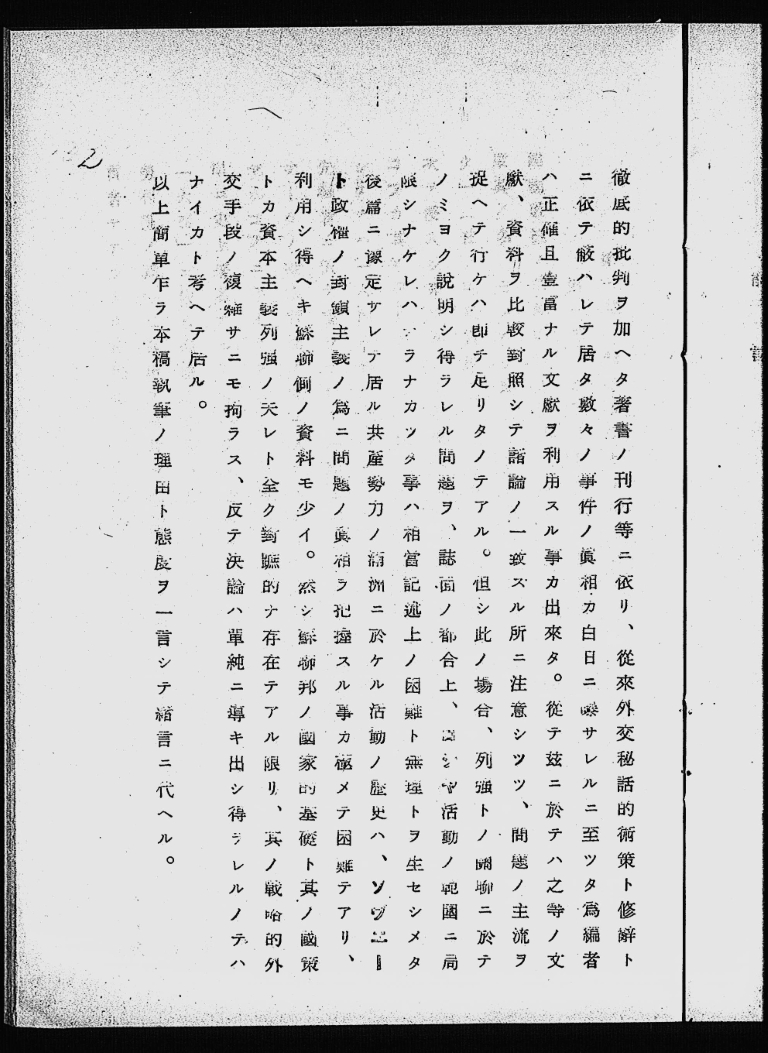 徹底的批判ヲ加ヘタ著書ノ刊行等ニ依リ、從來外交秘話的術策ト修辭ト
ニ依テ蔽ハレテ居タ數々ノ事件ノ眞相カ白日ニ曝サレルニ至ツタ爲編者
ハ正確且豊富ナル文獻ヲ利用スル事カ出來タ。從テ茲ニ於テハ之等ノ文
獻、資料ヲ比較對照シテ諸論ノ一致スル所ニ注意シツツ、問題ノ主流ヲ
捉ヘテ行ケハ即チ足リタノテアル。但シ此ノ場合、列強トノ關聯ニ於テ
ノミヨク說明シ得ラレル問題ヲ、誌面ノ都合上、活動ノ範圍ニ局
限シナケレハラナカツタ事ハ相當記述上ノ困難ト無理トヲ生セシメタ
後篇ニ豫定サレテ居ル共產勢力ノ滿洲ニ於ケル活動ノ歷史ハ、ソヴエー
ト政權ノ封鎖主義ノ爲ニ問題ノ眞相ヲ把握スル事カ極メテ困難テアリ、
利用シ得ヘキ蘇聯側ノ資料モ少イ。然シ蘇聯邦ノ國家的基礎ト其ノ國策
トカ資本主義列强ノ夫レト全ク對蹠的ナ存在テアル限リ、其ノ戰略的外
交手段ノ複雜サニモ拘ラス、反テ決論ハ單純ニ導キ出シ得ラレルノテハ
ナイカト考ヘテ居ル。
以上簡單乍ラ本稿執筆ノ理由ト態度ヲ一言シテ緒言ニ代ヘル。
2